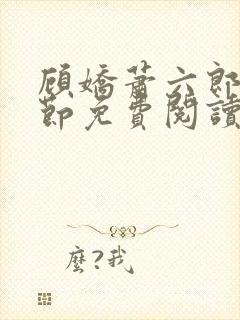 顧嬌蕭六郎
節免費閱讀
麼?我